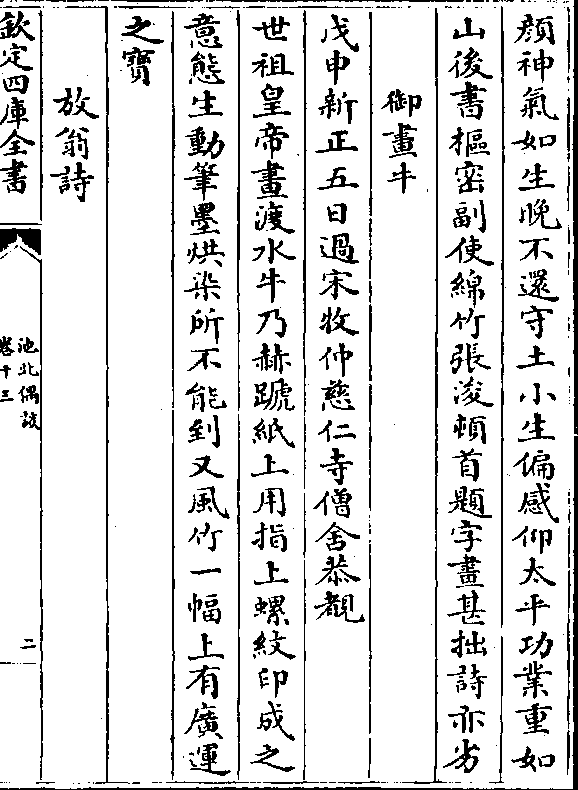 顔神氣如生晚不還守土小生偏感仰太平功業重如
山後書樞密副使綿竹張浚頓首題字畫甚拙詩亦劣
御畫牛
戊申新正五日過宋牧仲慈仁寺僧舍恭覩
世祖皇帝畫渡水牛乃赫蹏紙上用指上螺紋印成之
意態生動筆墨烘染所不能到又風竹一幅上有廣運
之寶
放翁詩
欽定四庫全書
池北偶談
卷十三
二